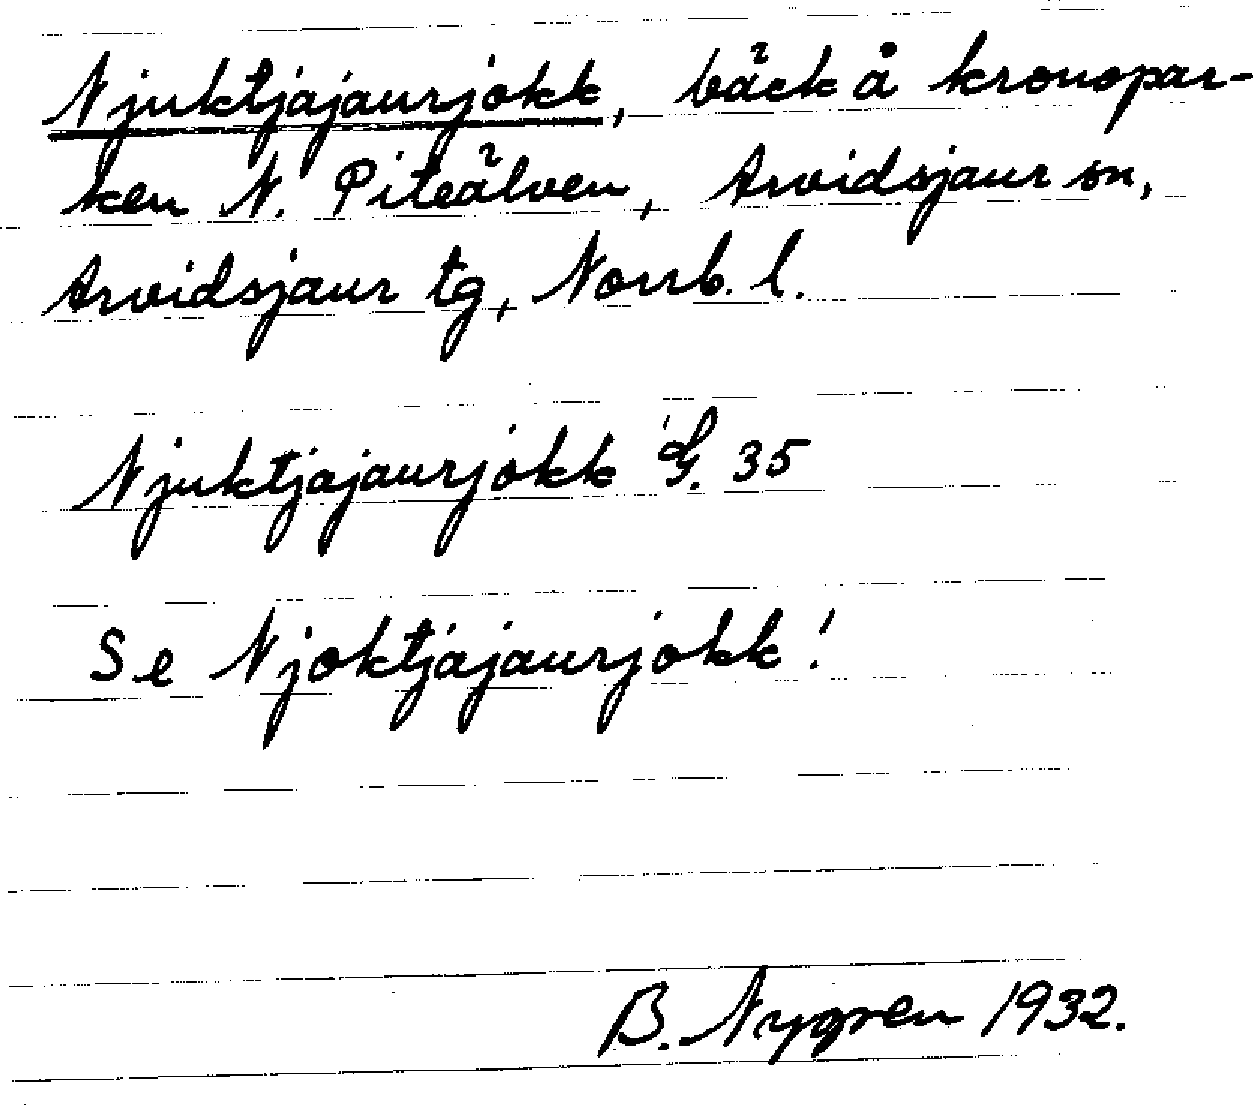 Njuktjajaurjokk, bäck å kronopar-
ken N. Piteälven, Arvidsjaur sn,
Arvidsjaur tg, Norrb. l.
Njuktjajaurjokk G. 35
Se Njoktjajaurjokk!
B. Nygren 1932.